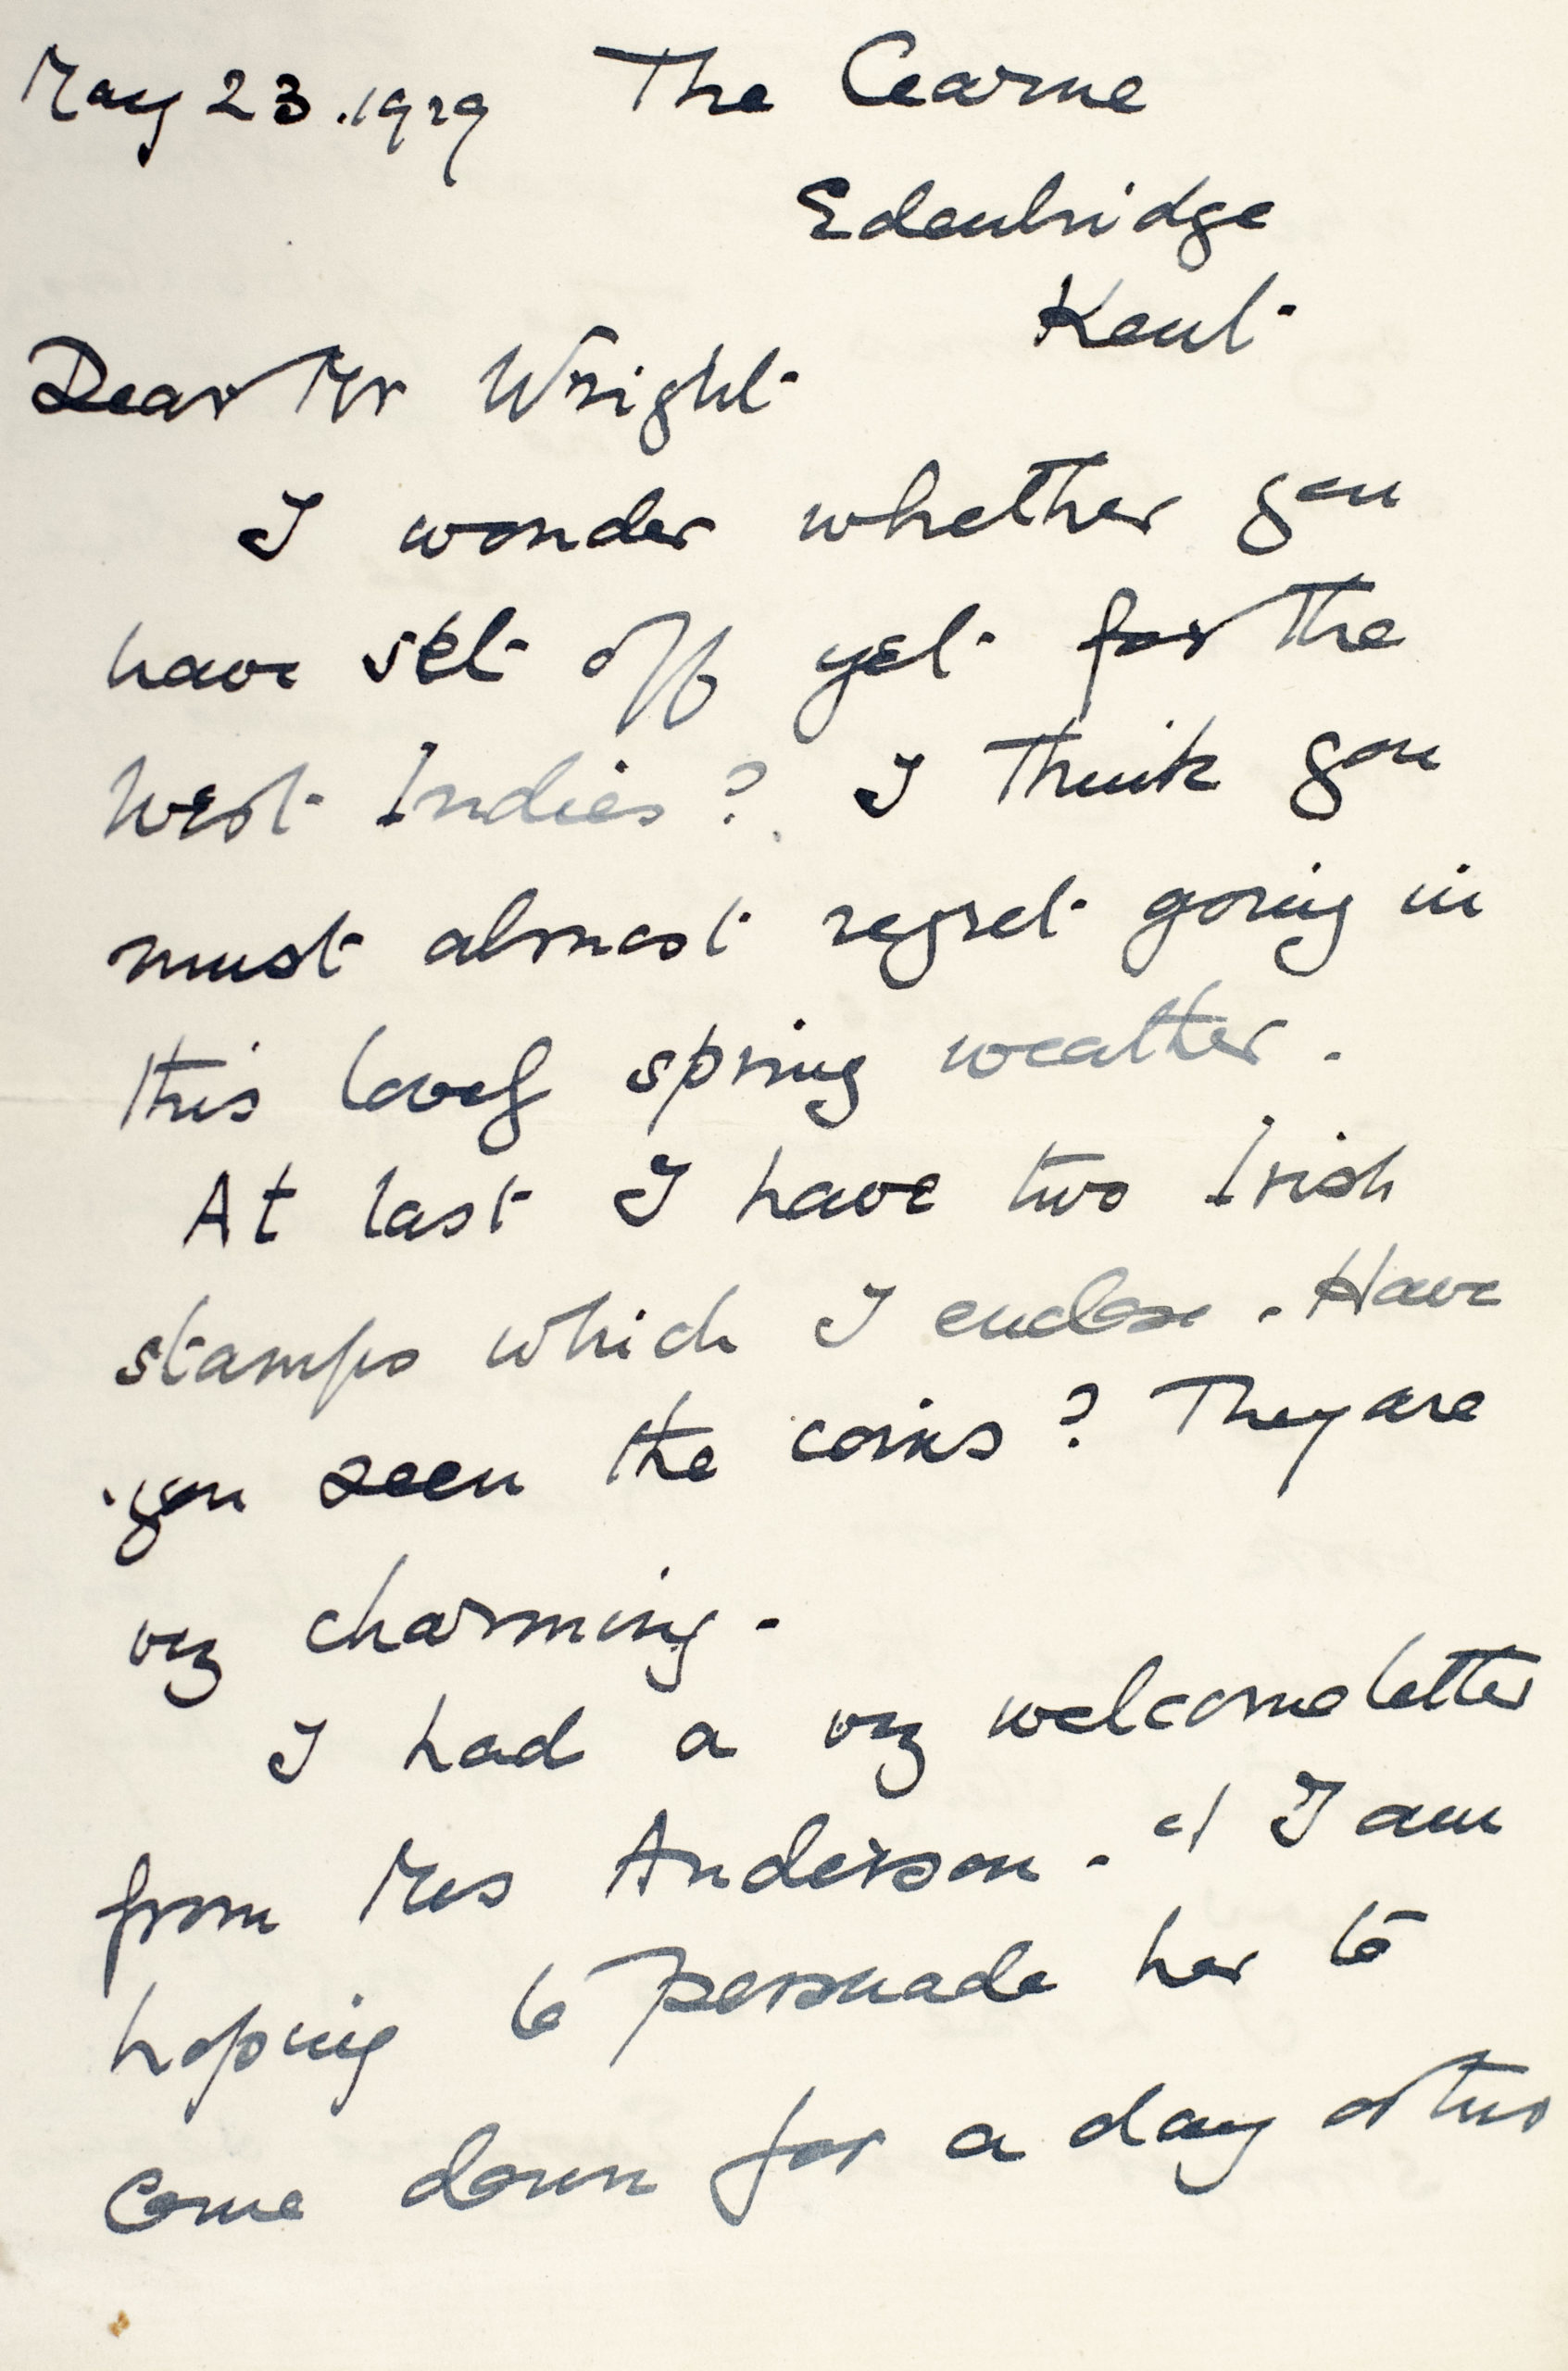 May 23. 1929 The Cearne
Edenbridge
Kent
Dear Mr Wright
I wonder whether you
have set off yet for the
West Indies? I think you
must almost regret going in
this lovely spring weather.
At last I have two Irish
stamps which I enclose. Have
you seen the coins? They are
very charming.
I had a very welcome letter
from Mrs Anderson. I am
hoping to persuade her to
come down for a day or two